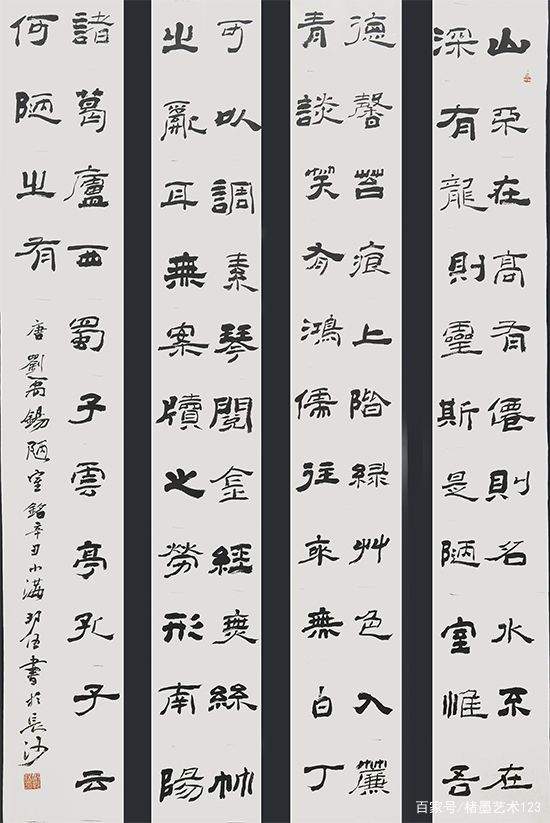 山不在高有僊則名水不在
深有龍則靈斯是陋室惟吾
德馨苔痕上階緑艸色入簾
青談笑有鴻儒往來無白丁
可以調素琴閱金經無絲竹
之亂耳無案牘之勞形南陽
諸葛廬西蜀子雲亭孔子云
何陋之有
唐劉禹錫陋室銘辛丑小滿書於長沙
百家号/楮墨艺术123